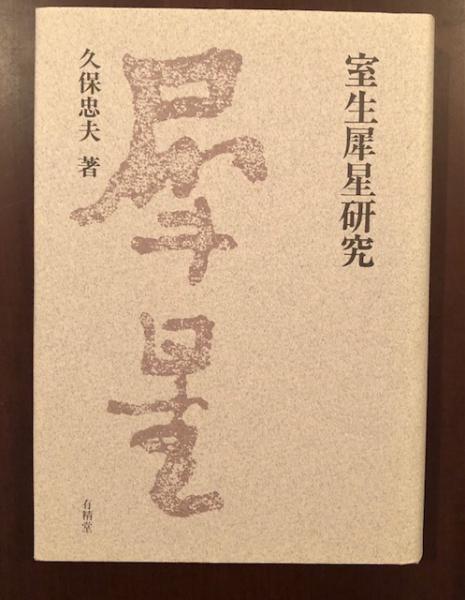 室生犀星研究
犀星
久保忠夫 著
有精堂